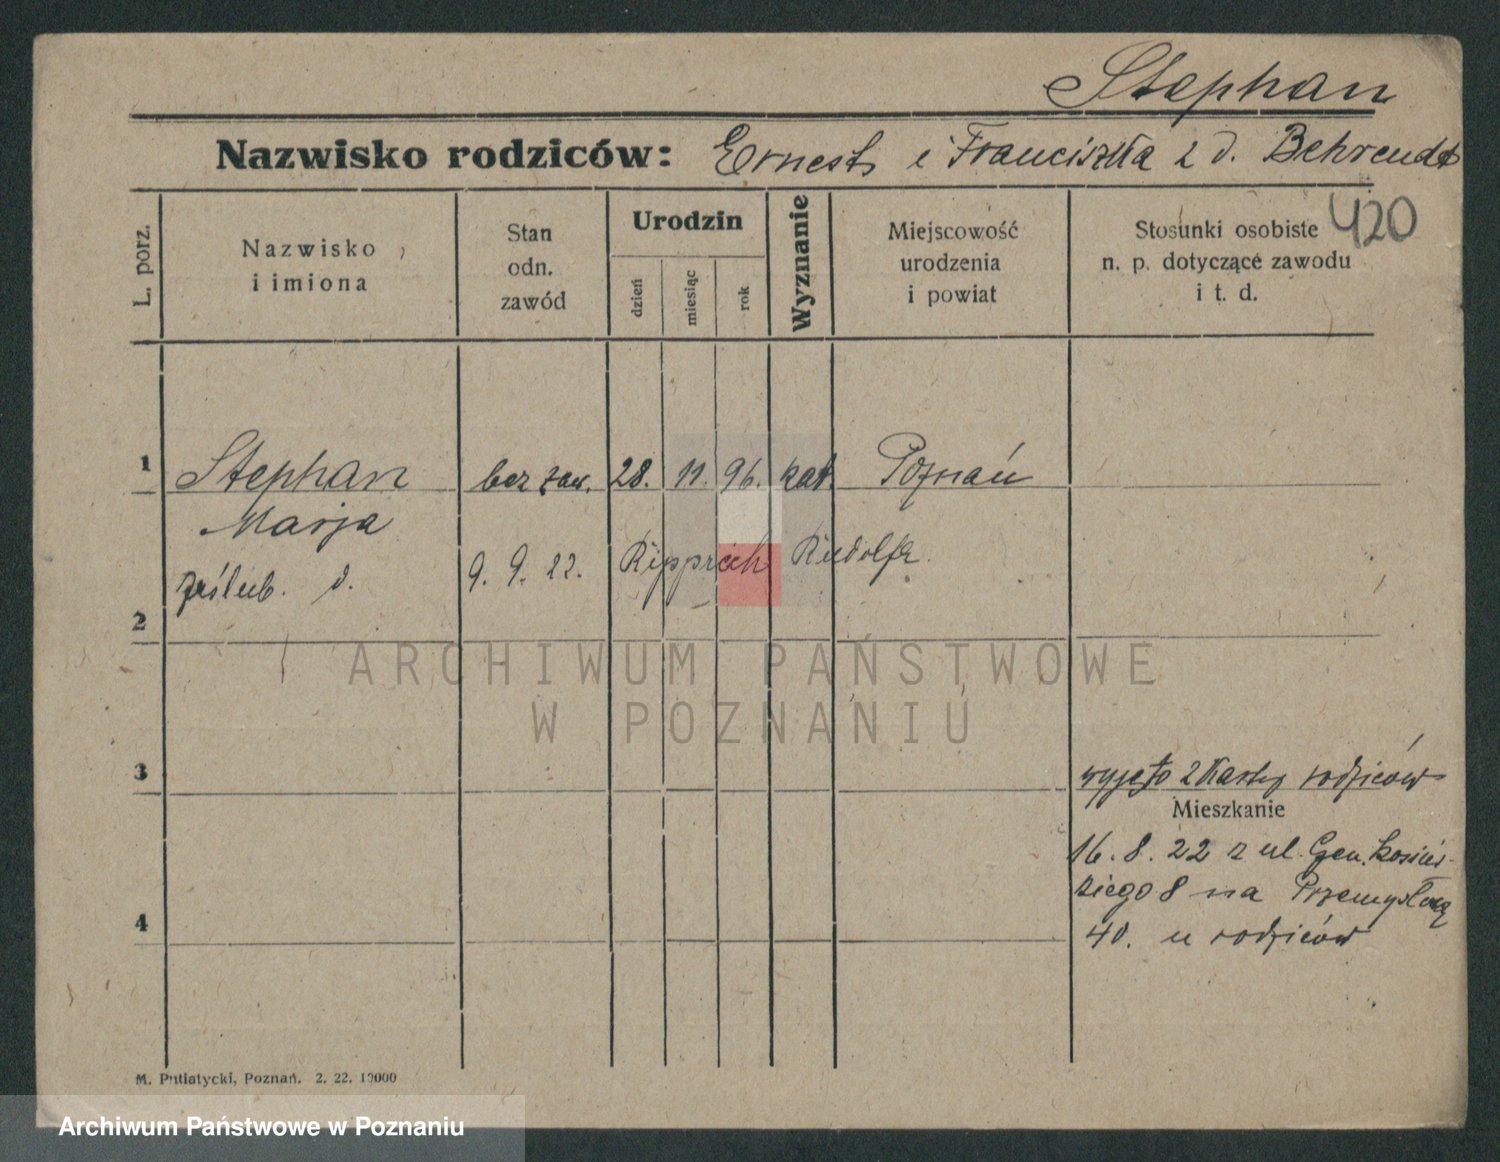 Stephan
Nazwisko rodziców: Ernest i Franciszka z d. Behrendt
420
L. porz.
Nazwisko
i imiona
Stan
odn.
zawód
Urodzin
dzień
miesiąc
rok
Wyznanie
Miejscowość
urodzenia
i powiat
Stosunki osobiste
n. p. dotyczące zawodu
i t. d.
1 Stephan bez zaw. 28. 11. 96. kat. Poznań
Marja
zaślub. d. 9. 9. 22. Ripprich Rudolfa.
2
ARCHIWUM PAŃSTWOWE
W POZNANIU
3
wyjęto z Karty rodziców
Mieszkanie
16. 8. 22 z ul. Gen. Kosiń-
skiego 8 na Przemysłową
4
40. u rodziców
M. Putiatycki, Poznań. 2. 22. 10000
Archiwum Państwowe w Poznaniu